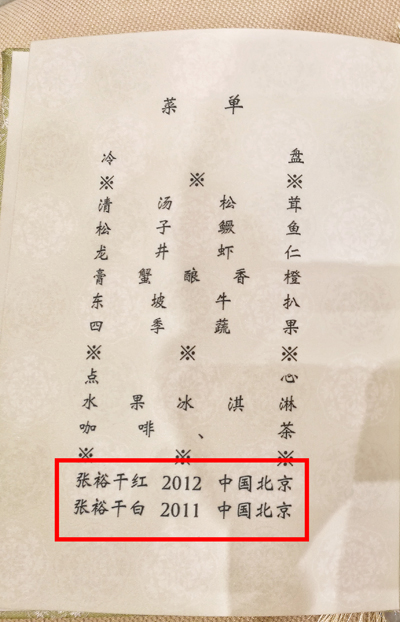 菜 单
冷 盘
※ ※ ※
清 汤 松 茸
松 子 鳜 鱼
龙 井 虾 仁
膏 蟹 酿 香 橙
东 坡 牛 扒
四 季 蔬 果
※ ※ ※
点 心
水 果 冰 淇 淋
咖 啡 、 茶
※ ※ ※
张裕干红 2012 中国北京
张裕干白 2011 中国北京